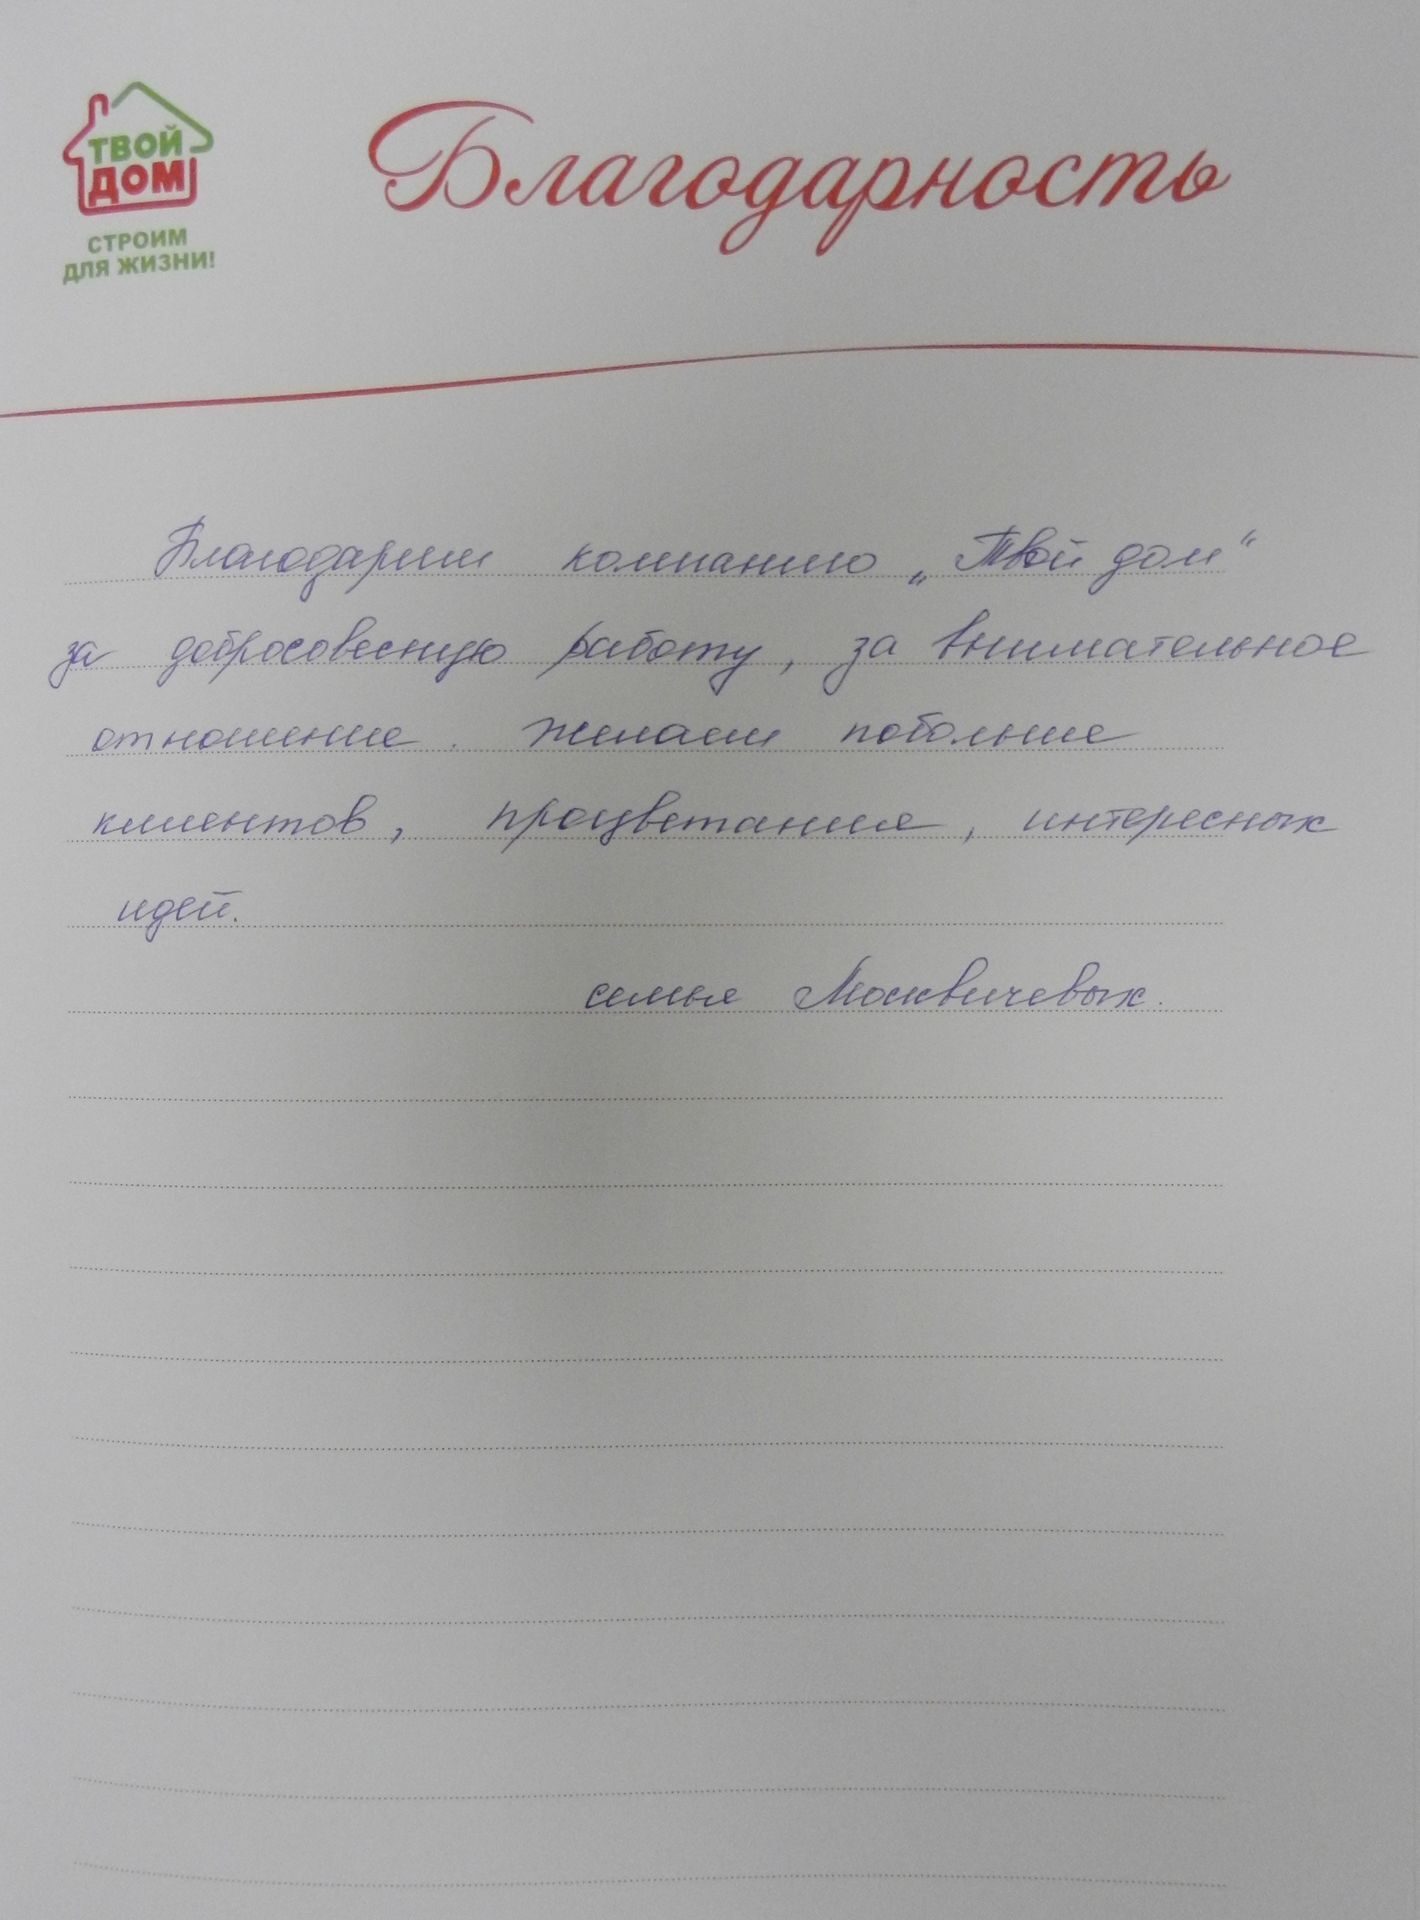 ТВОЙ
ДОМ
СТРОИМ
ДЛЯ ЖИЗНИ!
Благодарность
Благодарим компанию „Твой дом“
за добросовесную работу, за внимательное
отношение. Желаем побольше
клиентов, процветания, интересных
идей.
семья Москвичевых.